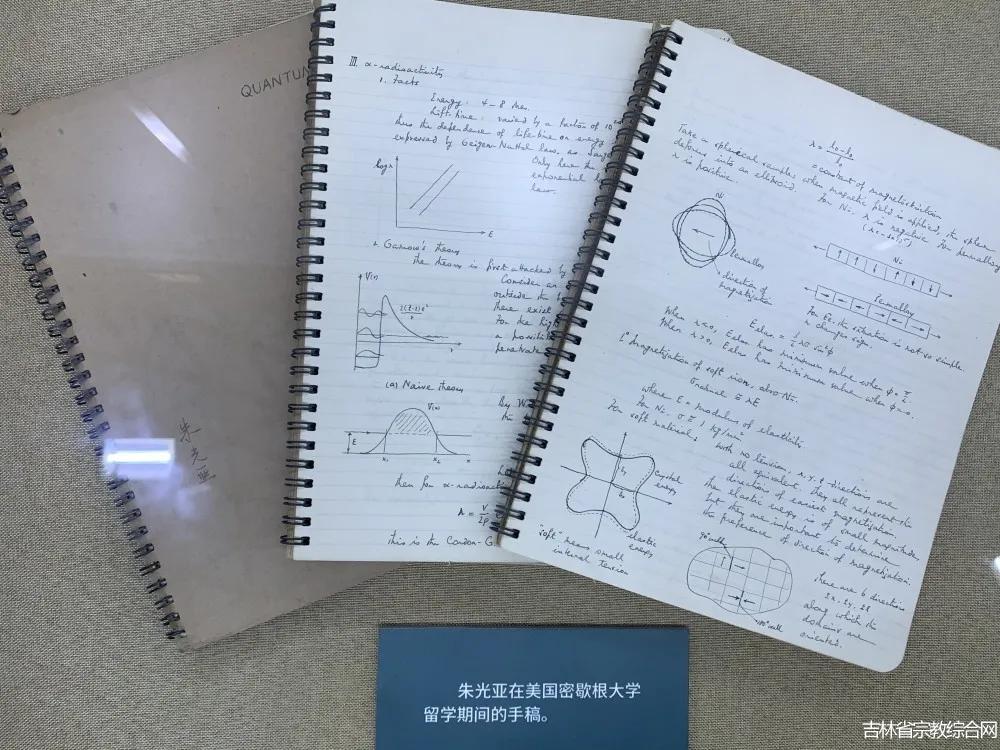 QUANTUM
朱光亚
III. α-radioactivity
1. Facts
Energy: 4-8 Mev.
Life-time: varied by a factor of 10
thus the dependence of life-time on energy
expressed by Geiger-Nuttal law, as
Only here the
exponential
law.
log λ
E
2. Gamow's theory
The theory is first attacked by
V(r)
Consider an
outside the
there exist
for the
a possib
penetrate
r
(a) Naive theory
V(x)
E
x₁
x₂
x
By W
then for α-radioact
λ =
this is the Condon-G
= constant of magnetostriction
Take a spherical sample, when magnetic field is applied, the sphere
deforms into an ellipsoid. For Ni, λ is negative. For permalloy
λ is positive.
Ni
Permalloy
direction of
magnetization
Ni
Permalloy
For Fe, the situation is not so simple.
λ changes sign.
When λ<0, Eelas has minimum value when φ=
When λ>0, Eelas has minimum value when φ=0.
Magnetization of soft iron, also Ni.
where E = modulus of elasticity
For soft materials, with no tension, x, y, z directions are
all equivalent. They all represent the
directions of easiest magnetization.
The elastic energy is of small magnitude
but they are important to determine
the preference of direction of magnetization.
Crystal
energy
elastic
energy
"soft" means small
internal tension
90° wall
180° wall
There are 6 directions
along which the
domains are
oriented.
朱光亚在美国密歇根大学
留学期间的手稿。
吉林省宗教综合网